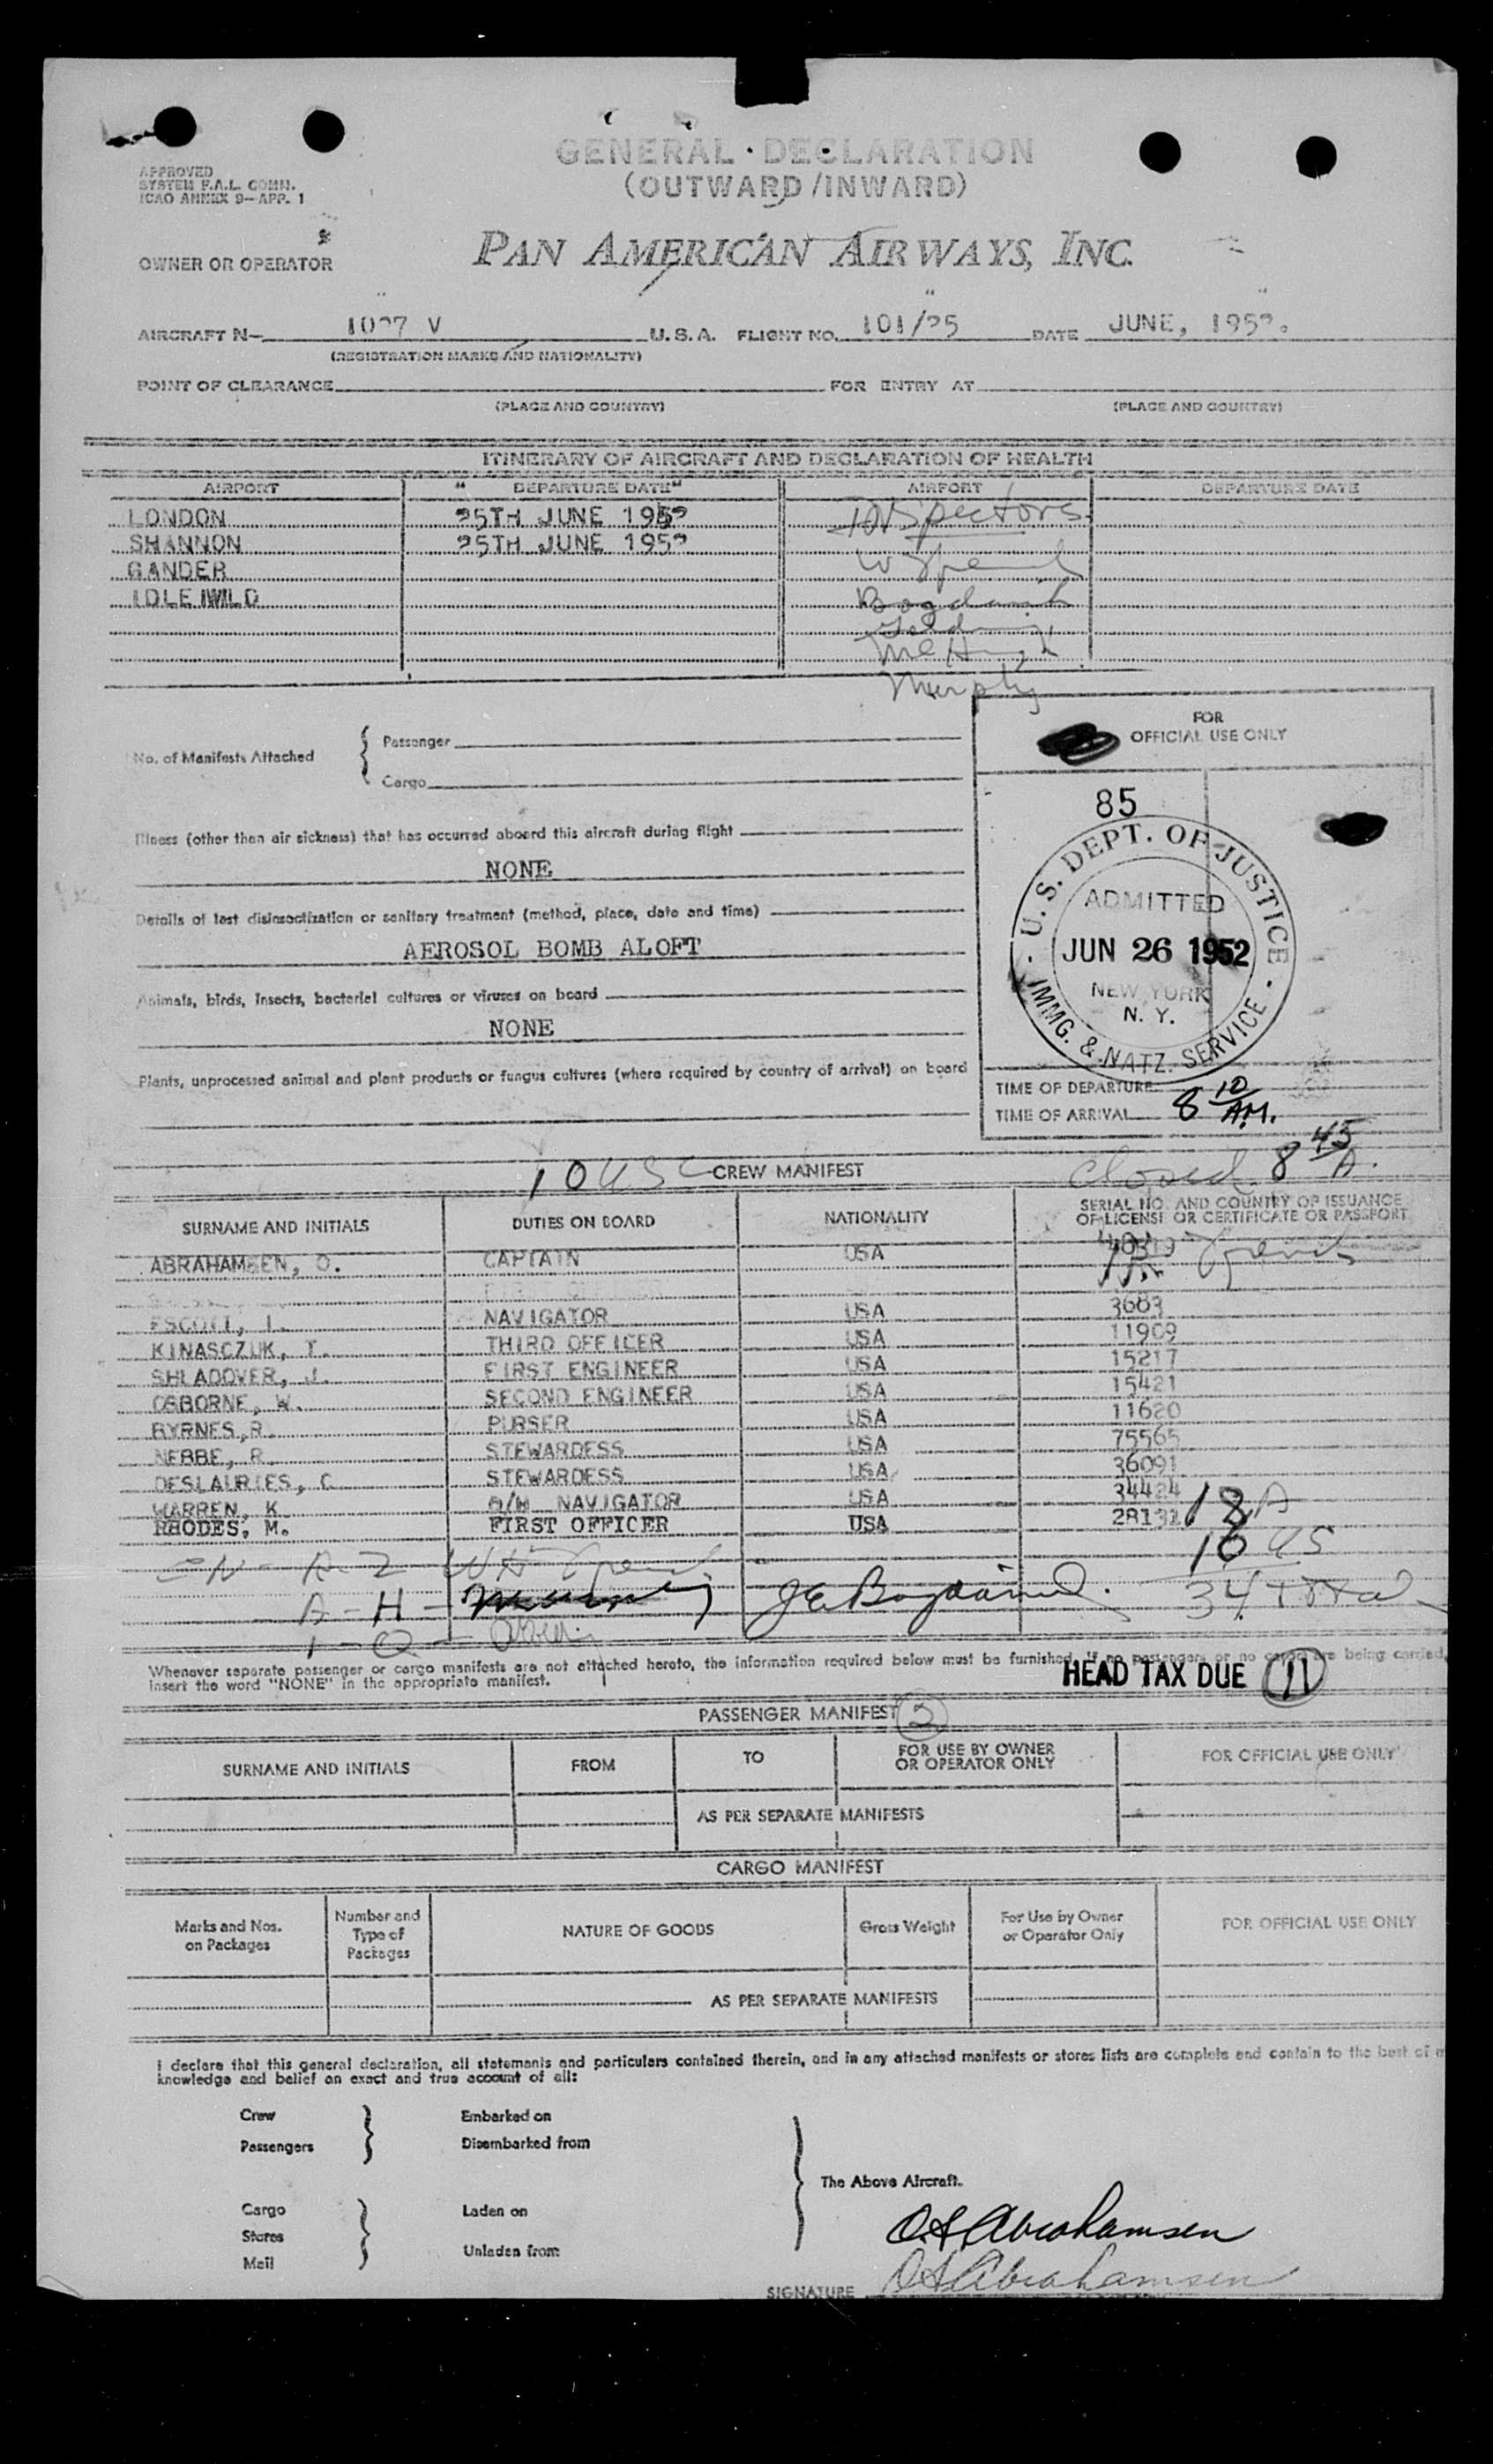 GENERAL DECLARATION
(OUTWARD/INWARD)
APPROVED
SYSTEM F.A.L. COMM.
ICAO ANNEX 9-APP. 1
OWNER OR OPERATOR PAN AMERICAN AIRWAYS, INC.
AIRCRAFT N- 1027 V U.S.A. FLIGHT NO. 101/25 DATE JUNE, 1952.
(REGISTRATION MARKS AND NATIONALITY)
POINT OF CLEARANCE FOR ENTRY AT
(PLACE AND COUNTRY) (PLACE AND COUNTRY)
ITINERARY OF AIRCRAFT AND DECLARATION OF HEALTH
AIRPORT DEPARTURE DATE AIRPORT DEPARTURE DATE
LONDON 25TH JUNE 1952 Inspectors
SHANNON 25TH JUNE 1952
GANDER
IDLEWILD
McHugh
Murphy
FOR
OFFICIAL USE ONLY
No. of Manifests Attached { Passenger
Cargo
85
Illness (other than air sickness) that has occurred aboard this aircraft during flight
NONE
Details of last disinsectization or sanitary treatment (method, place, date and time)
AEROSOL BOMB ALOFT
Animals, birds, insects, bacterial cultures or viruses on board
NONE
Plants, unprocessed animal and plant products or fungus cultures (where required by country of arrival) on board
U. S. DEPT. OF JUSTICE
ADMITTED
JUN 26 1952
NEW YORK
N. Y.
IMMG. & NATZ. SERVICE
TIME OF DEPARTURE
TIME OF ARRIVAL 8 10 A.M.
10 USC CREW MANIFEST closed 8 45 A.
SURNAME AND INITIALS DUTIES ON BOARD NATIONALITY SERIAL NO. AND COUNTRY OF ISSUANCE
OF LICENSE OR CERTIFICATE OR PASSPORT
ABRAHAMSEN, O. CAPTAIN USA
ESCOTT, I. NAVIGATOR USA 3683
KINASCZUK, T. THIRD OFFICER USA 11909
SHLADOVER, J. FIRST ENGINEER USA 15217
OSBORNE, W. SECOND ENGINEER USA 15421
BYRNES, R. PURSER USA 11620
NEBBE, R. STEWARDESS USA 75565
DESLAURIES, C STEWARDESS USA 36091
WARREN, K NAVIGATOR USA 34424
RHODES, M. FIRST OFFICER USA 28131
18 A
16 US
34 Total
A - H -
Whenever separate passenger or cargo manifests are not attached hereto, the information required below must be furnished. If no passengers or no cargo are being carried,
insert the word "NONE" in the appropriate manifest.
HEAD TAX DUE 11
PASSENGER MANIFEST 2
SURNAME AND INITIALS FROM TO FOR USE BY OWNER
OR OPERATOR ONLY FOR OFFICIAL USE ONLY
AS PER SEPARATE MANIFESTS
CARGO MANIFEST
Marks and Nos.
on Packages Number and
Type of
Packages NATURE OF GOODS Gross Weight For Use by Owner
or Operator Only FOR OFFICIAL USE ONLY
AS PER SEPARATE MANIFESTS
I declare that this general declaration, all statements and particulars contained therein, and in any attached manifests or stores lists are complete and contain to the best of m
knowledge and belief an exact and true account of all:
Crew Embarked on
Passengers Disembarked from
The Above Aircraft.
Cargo Laden on
Stores
Mail Unladen from
O A Abrahamsen
SIGNATURE O A Abrahamsen